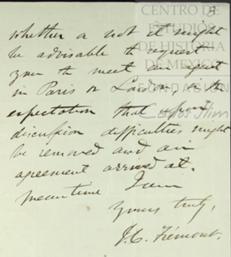 3
whether or not it might
be advisable to request
you to meet an agent
in Paris or London in the
expectation that upon
discussion difficulties might
be removed and an
agreement arrived at.
Meantime I am
yours truly,
J. C. Frémont.
CENTRO DE
ESTUDIOS
DE HISTORIA
DE MEXICO